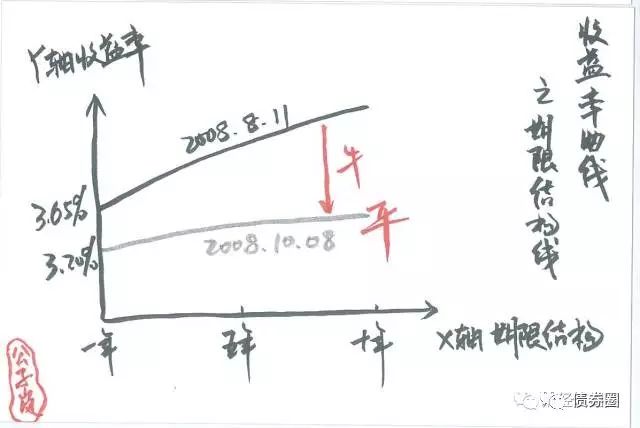 Y轴收益率
收益率曲线
之期限结构线
2008.8.11
牛
3.65%
平
3.20%
2008.10.08
一年
五年
十年
X轴期限结构
公子
债券圈